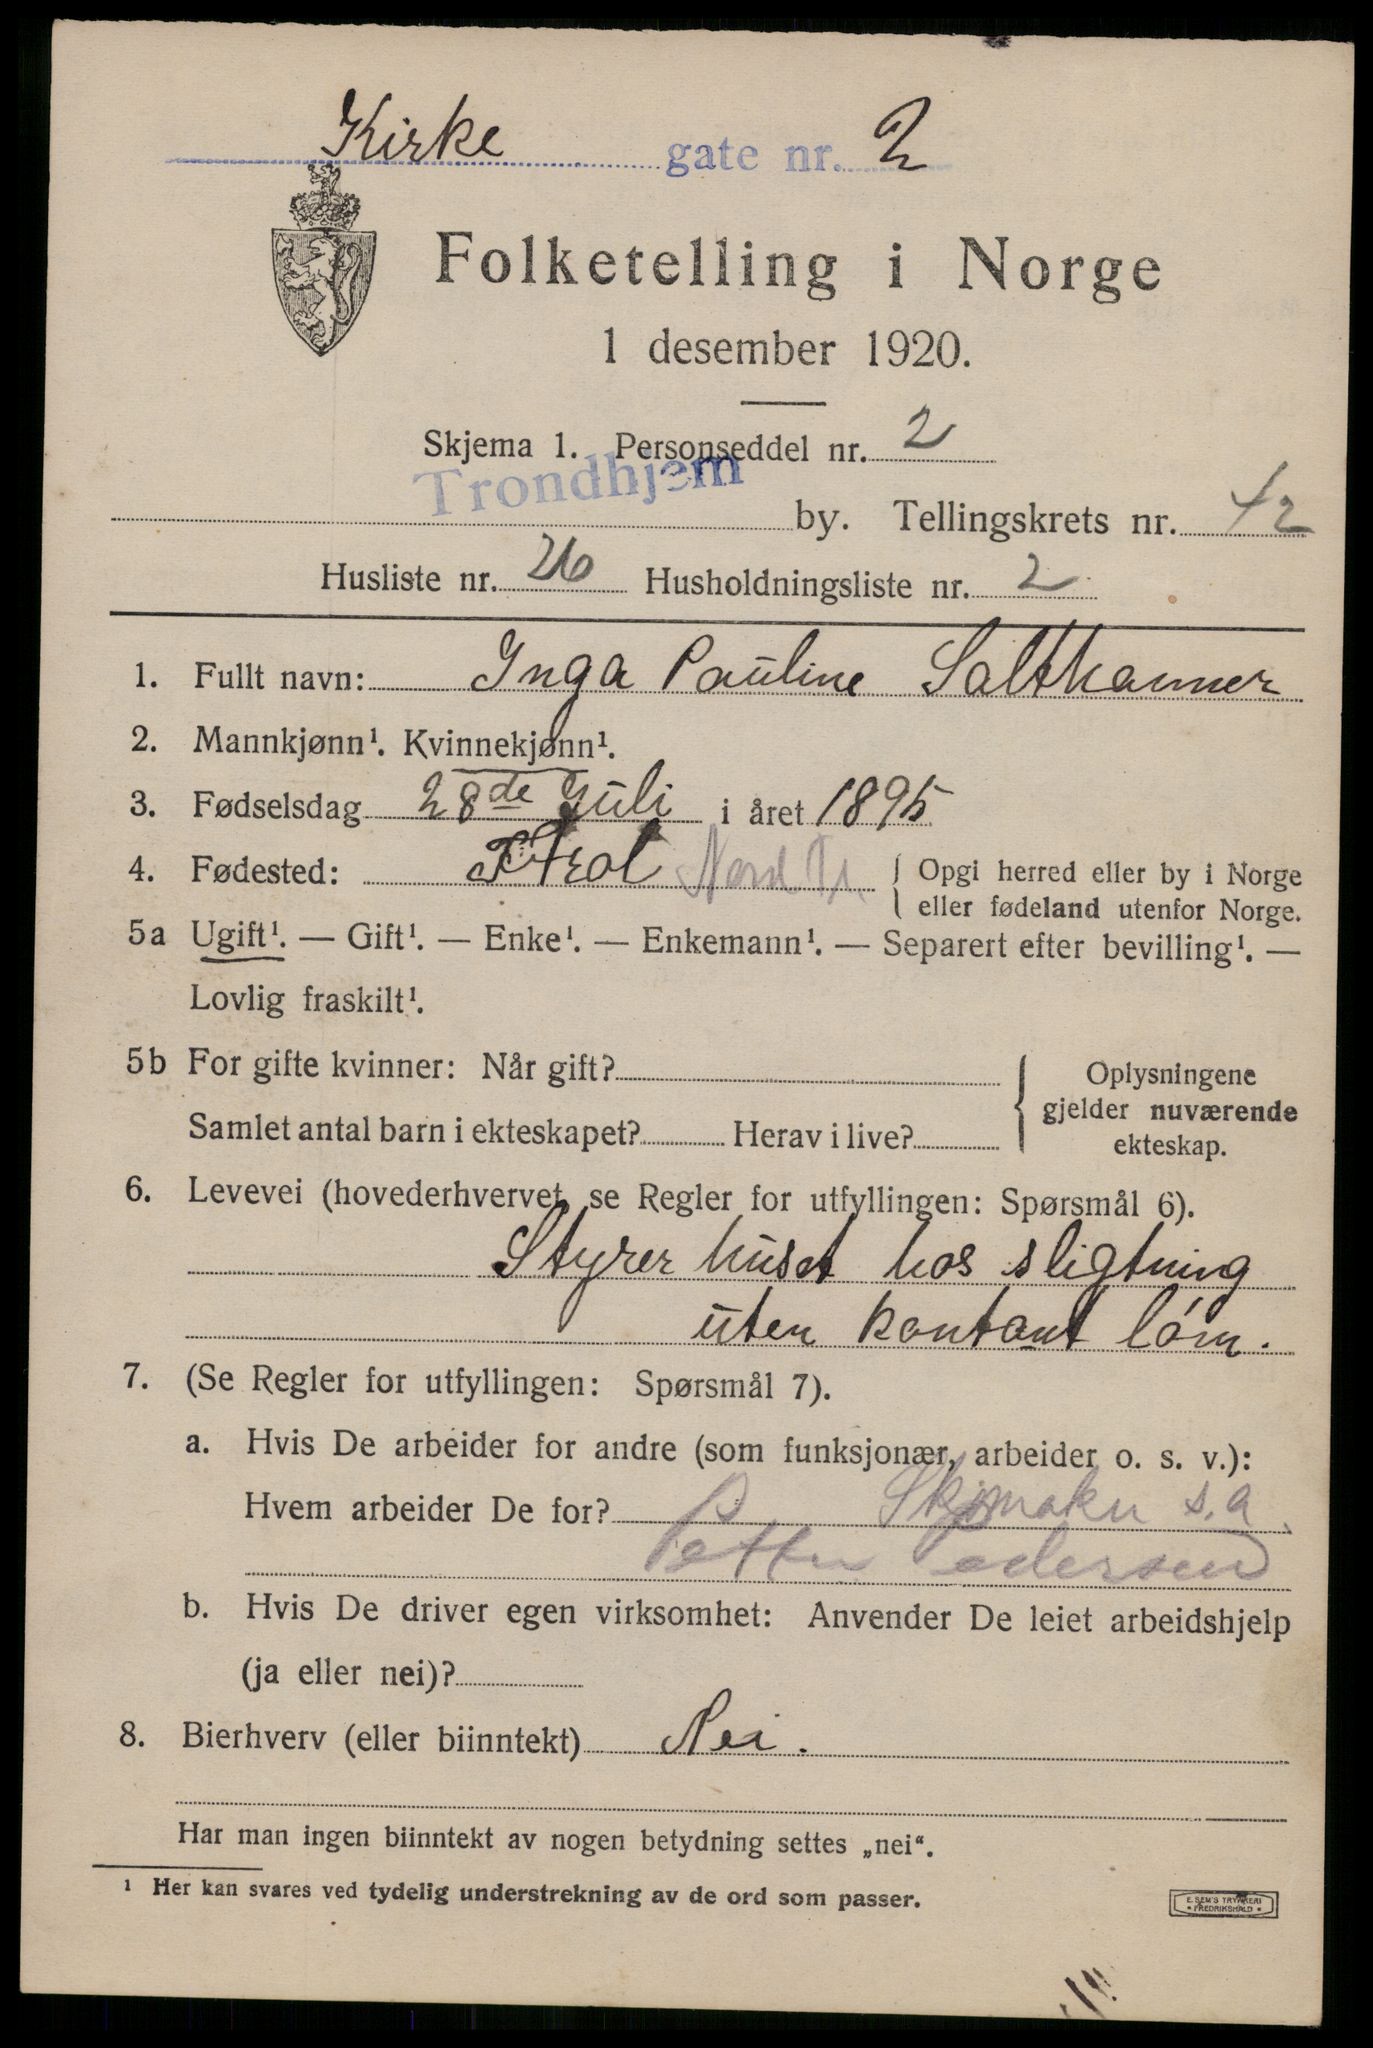 Kirke gate nr. 2
Folketelling i Norge
1 desember 1920.
Skjema 1. Personseddel nr. 2
Trondhjem by. Tellingskrets nr. 42
Husliste nr. 26 Husholdningsliste nr. 2
1. Fullt navn: Inga Pauline Salthammer
2. Mannkjønn¹. Kvinnekjønn¹.
3. Fødselsdag 28de Juli i året 1895
4. Fødested: Frol Nord Tr. { Opgi herred eller by i Norge
eller fødeland utenfor Norge.
5a Ugift¹. — Gift¹. — Enke¹. — Enkemann¹. — Separert efter bevilling¹. —
Lovlig fraskilt¹.
5b For gifte kvinner: Når gift? { Oplysningene
gjelder nuværende
Samlet antal barn i ekteskapet? Herav i live?
ekteskap.
6. Levevei (hovederhvervet, se Regler for utfyllingen: Spørsmål 6).
Styrer huset hos sligtning
uten kontant lónn.
7. (Se Regler for utfyllingen: Spørsmål 7).
a. Hvis De arbeider for andre (som funksjonær, arbeider o. s. v.):
Hvem arbeider De for? s.a.
Petter Pedersen
b. Hvis De driver egen virksomhet: Anvender De leiet arbeidshjelp
(ja eller nei)?
8. Bierhverv (eller biinntekt) Nei.
Har man ingen biinntekt av nogen betydning settes „nei“.
¹ Her kan svares ved tydelig understrekning av de ord som passer.
E. SEM'S TRYKKERI
FREDRIKSHALD